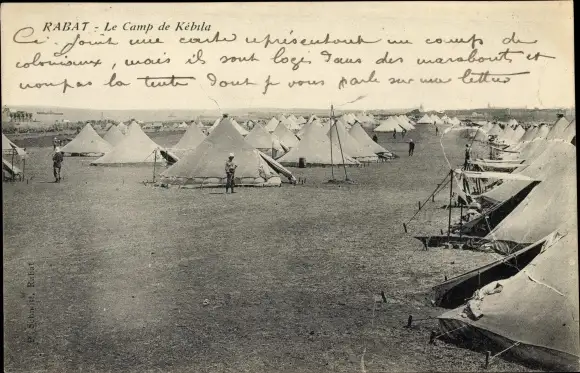 RABAT - Le Camp de Kébita
Ci joint une carte représentant un camps de
coloniaux, mais ils sont logés dans des marabouts et
non pas la tente dont je vous parle sur ma lettre
P. Schmitt, Rabat